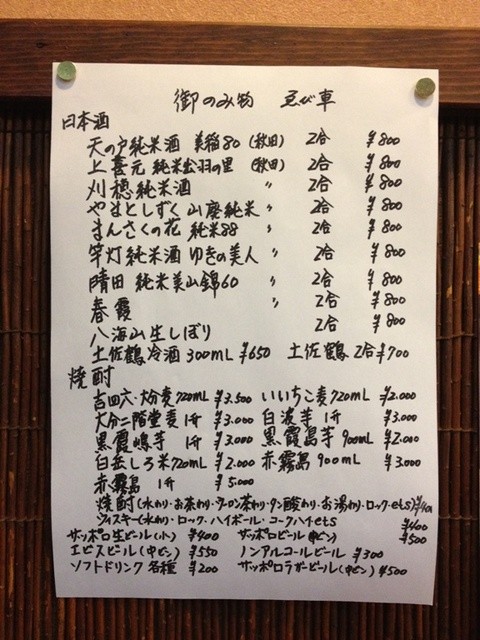 御のみ物 ゑび車
日本酒
天の戸純米酒 美稲80 (秋田) 2合 ¥800
上喜元 純米出羽の里 (秋田) 2合 ¥800
刈穂純米酒 〃 2合 ¥800
やまとしずく 山廃純米 〃 2合 ¥800
まんさくの花 純米88 〃 2合 ¥800
竿灯純米酒 ゆきの美人 〃 2合 ¥800
晴田 純米美山錦60 〃 2合 ¥800
春霞 〃 2合 ¥800
八海山生しぼり 2合 ¥800
土佐鶴冷酒 300mL ¥650 土佐鶴 2合 ¥700
焼酎
吉四六・大分麦720mL ¥3.500 いいちこ麦720mL ¥2.000
大分二階堂麦 1升 ¥3.000 白波芋 1升 ¥3.000
黒霞嶋芋 1升 ¥3.000 黒霞島芋 900mL ¥2.000
白岳しろ米720mL ¥2.000 赤霧島 900mL ¥3.000
赤霧島 1升 ¥5.000
焼酎(水わり・お茶わり・ウーロン茶わり・タン酸わり・お湯わり・ロック・ets) ¥400
ウィスキー(水わり・ロック・ハイボール・コークハイets ¥400
サッポロ生ビール(小) ¥400 サッポロビール(中ビン) ¥500
エビスビール(中ビン) ¥550 ノンアルコールビール ¥300
ソフトドリンク 各種 ¥200 サッポロラガービール(中ビン) ¥500